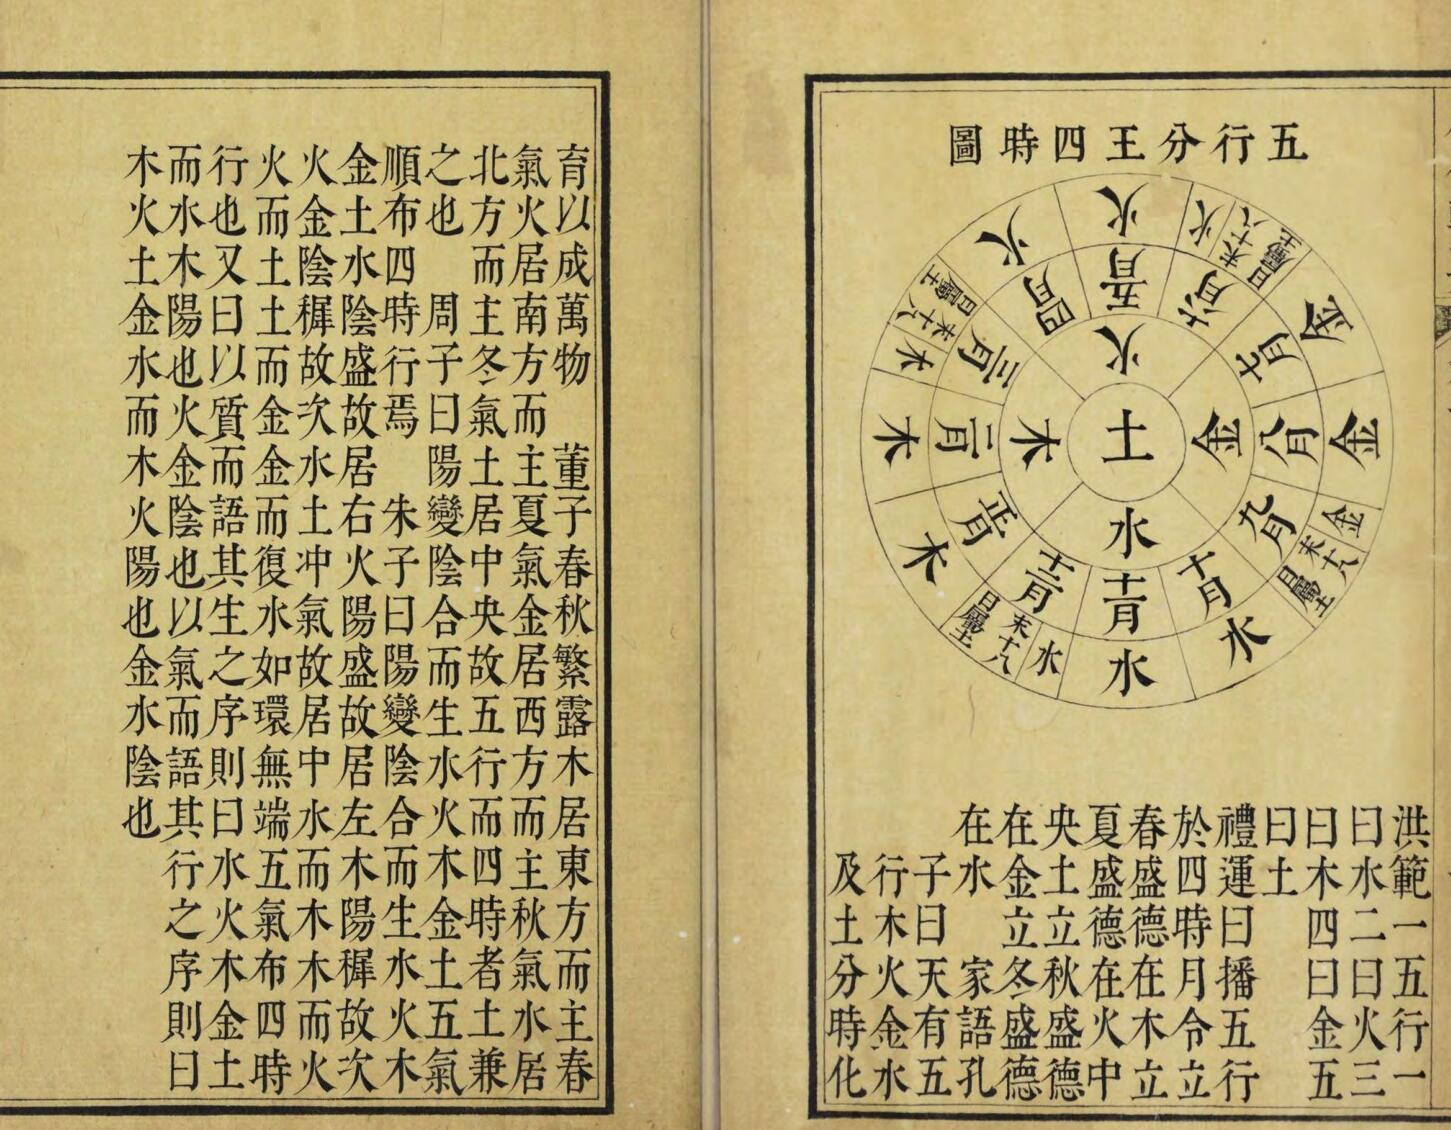 五行分王四時圖
土
火
金
水
木
正月
二月
三月
四月
五月
六月
七月
八月
九月
十月
十一月
十二月
木
木
木
末十八日屬土
火
火
火
末十八日屬土
金
金
金
末十八日屬土
水
水
水
末十八日屬土
洪範一五行一
曰水二曰火三
曰木四曰金五
曰土
禮運曰播五行
於四時月令立
春盛德在木立
夏盛德在火中
央土立秋盛德
在金立冬盛德
在水 家語孔
子曰天有五
行木火金水
及土分時化
育以成萬物 董子春秋繁露木居東方而主春
氣火居南方而主夏氣金居西方而主秋氣水居
北方而主冬氣土居中央故五行而四時者土兼
之也 周子曰陽變陰合而生水火木金土五氣
順布四時行焉 朱子曰陽變陰合而生水火木
金土水陰盛故居右火陽盛故居左木陽穉故次
火金陰穉故次水土冲氣故居中水而木木而火
火而土土而金金而復水如環無端五氣布四時
行也又曰以質而語其生之序則曰水火木金土
而水木陽也火金陰也以氣而語其行之序則曰
木火土金水而木火陽也金水陰也